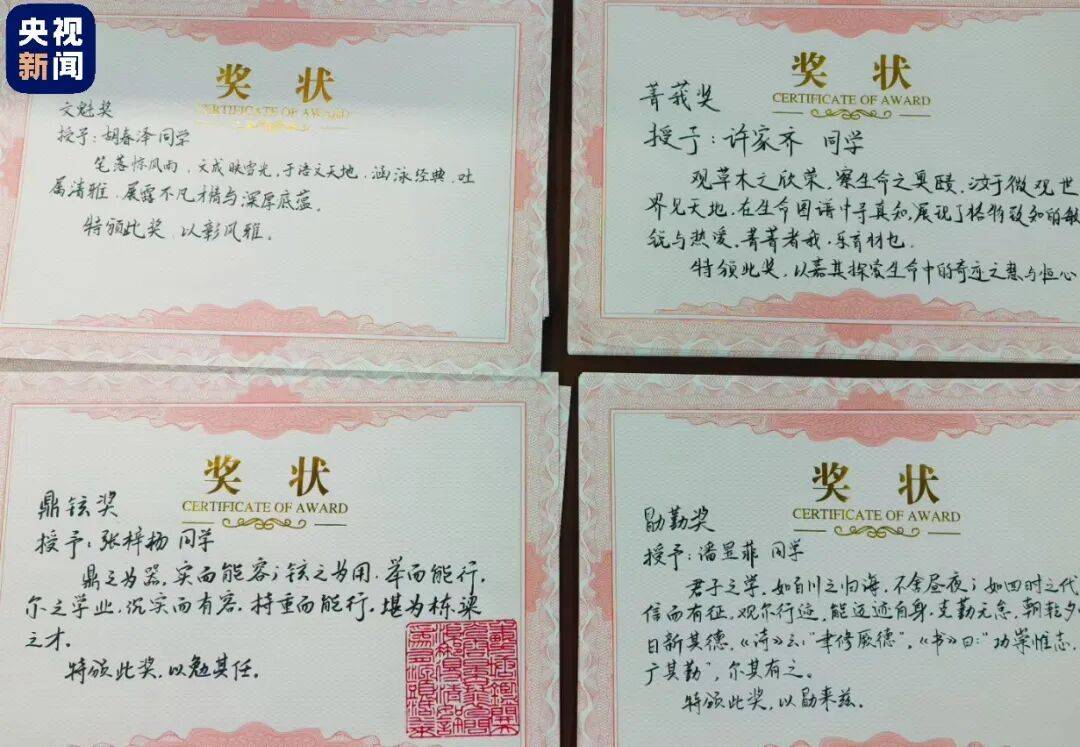 央视
新闻
奖 状
CERTIFICATE OF AWARD
文魁奖
授予:胡春泽 同学
笔落惊风雨,文成映雪光,于语文天地,涵泳经典,吐
属清雅,展露不凡才情与深厚底蕴。
特颁此奖,以彰风雅。
奖 状
CERTIFICATE OF AWARD
菁莪奖
授予:许家齐 同学
观草木之欣荣,察生命之奥赜,汝于微观世
界见天地,在生命图谱中寻真知,展现了格物致知的敏
锐与热爱,菁菁者我,乐育材也。
特颁此奖,以嘉其探索生命中的奇迹之慧与恒心
奖 状
CERTIFICATE OF AWARD
鼎铉奖
授予:张梓扬 同学
鼎之为器,实而能容;铉之为用,举而能行,
尔之学业,沉实而有容,持重而能行,堪为栋梁
之才。
特颁此奖,以勉其任。
奖 状
CERTIFICATE OF AWARD
勖勤奖
授予:潘昱菲 同学
君子之学,如百川之归海,不舍昼夜;如四时之代
信而有征,观尔行迹,能迈迹自身,克勤无怠,朝乾夕
日新其德,《诗》云:“聿修厥德”,《书》曰:“功崇惟志,
广其勤”,尔其有之。
特颁此奖,以勖来兹。